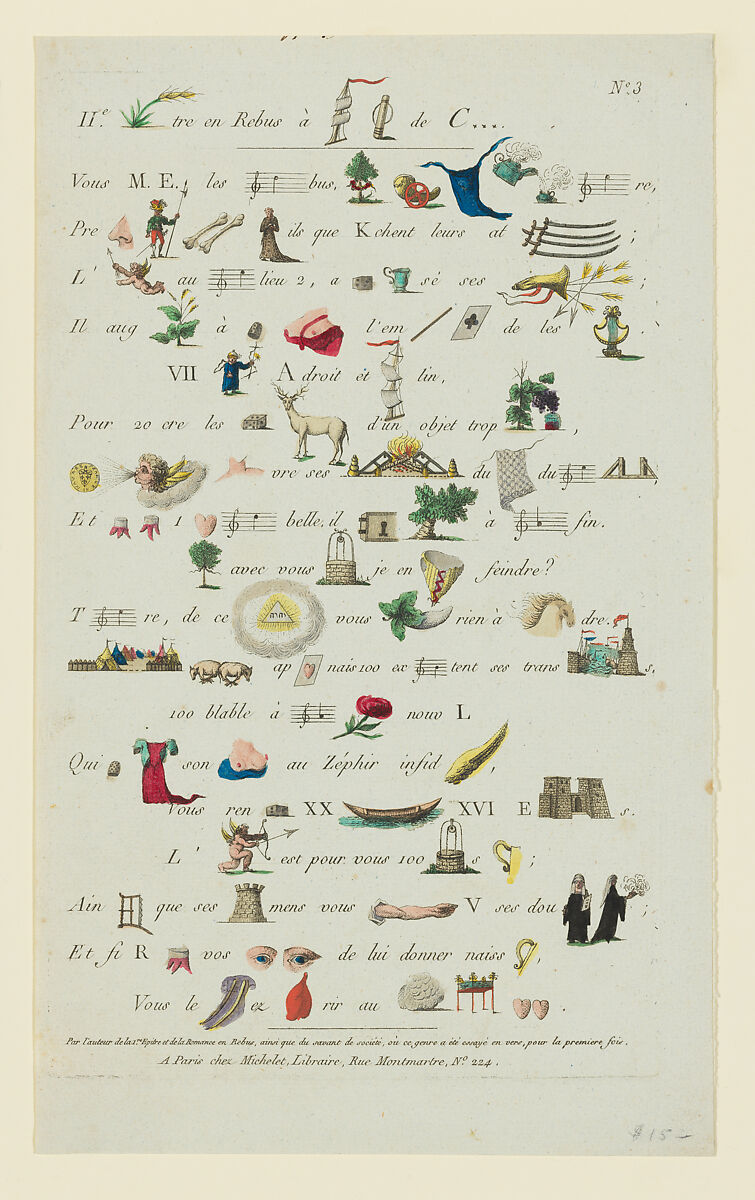 Nº. 3
IIe. tre en Rebus à de C...
Vous M. E. les bus, re,
Pre ils que K chent leurs at ;
L' au lieu 2, a sé ses ;
Il aug à l'em de les .
VII A droit et lin,
Pour 20 cre les d'un objet trop ,
vre ses du du ,
Et 1 belle, il à fin.
avec vous je en feindre?
T re, de ce vous rien à dre.
ap nais 100 ex tent ses trans s,
100 blable à nouv L
Qui son au Zéphir infid ,
Vous ren XX XVI E s.
L' est pour vous 100 s ;
Ain que ses mens vous V ses dou ;
Et si R vos de lui donner naiss ,
Vous le ez rir au
Par l'auteur de la 1re. Epitre et de la Romance en Rebus, ainsi que du savant de société, où ce genre a été essayé en vers, pour la premiere fois.
A Paris chez Michelet, Libraire, Rue Montmartre, Nº. 224.
$15-